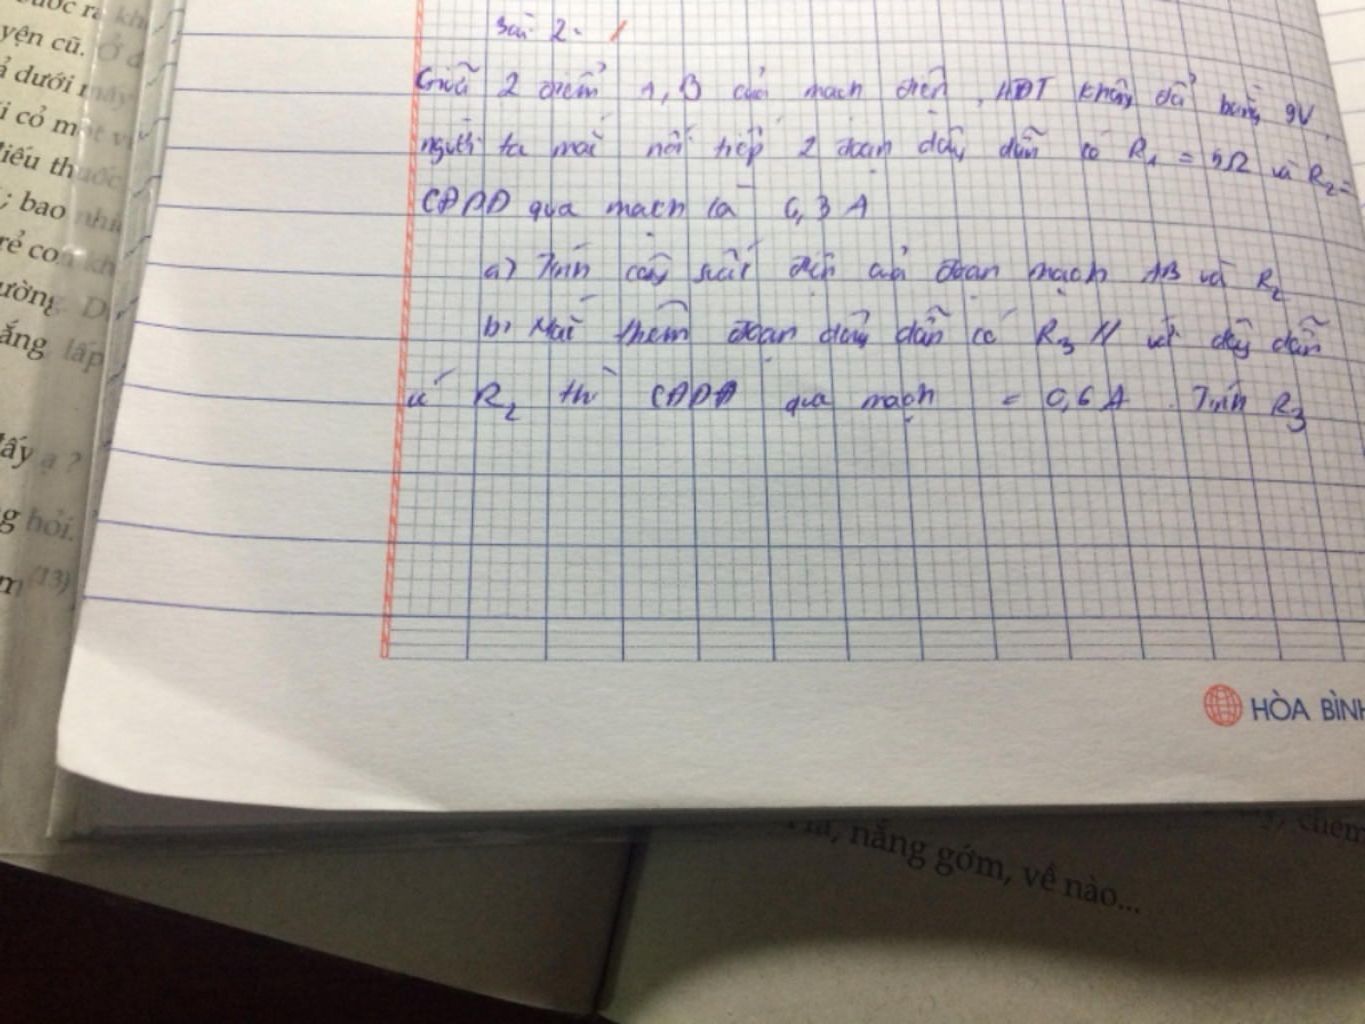 Bài 2.
Giữa 2 điểm A, B của mạch điện, HĐT không đổi bằng 9V
người ta mắc nối tiếp 2 đoạn dây dẫn có R1 = 5Ω và R2 =
CĐDĐ qua mạch là 0,3 A
a) Tính công suất điện của đoạn mạch AB và R2
b, Mắc thêm đoạn dây dẫn có R3 // với dây dẫn
có R2 thì CĐDĐ qua mạch = 0,6 A. Tính R3
HÒA BÌNH
yện cũ. Ở đ
ả dưới mây
i cỏ một v
iếu thuốc
; bao nhiê
rẻ con kh
ường. D
ắng lấp
đấy ạ ?
g hỏi.
m (13)
nắng gớm, về nào...